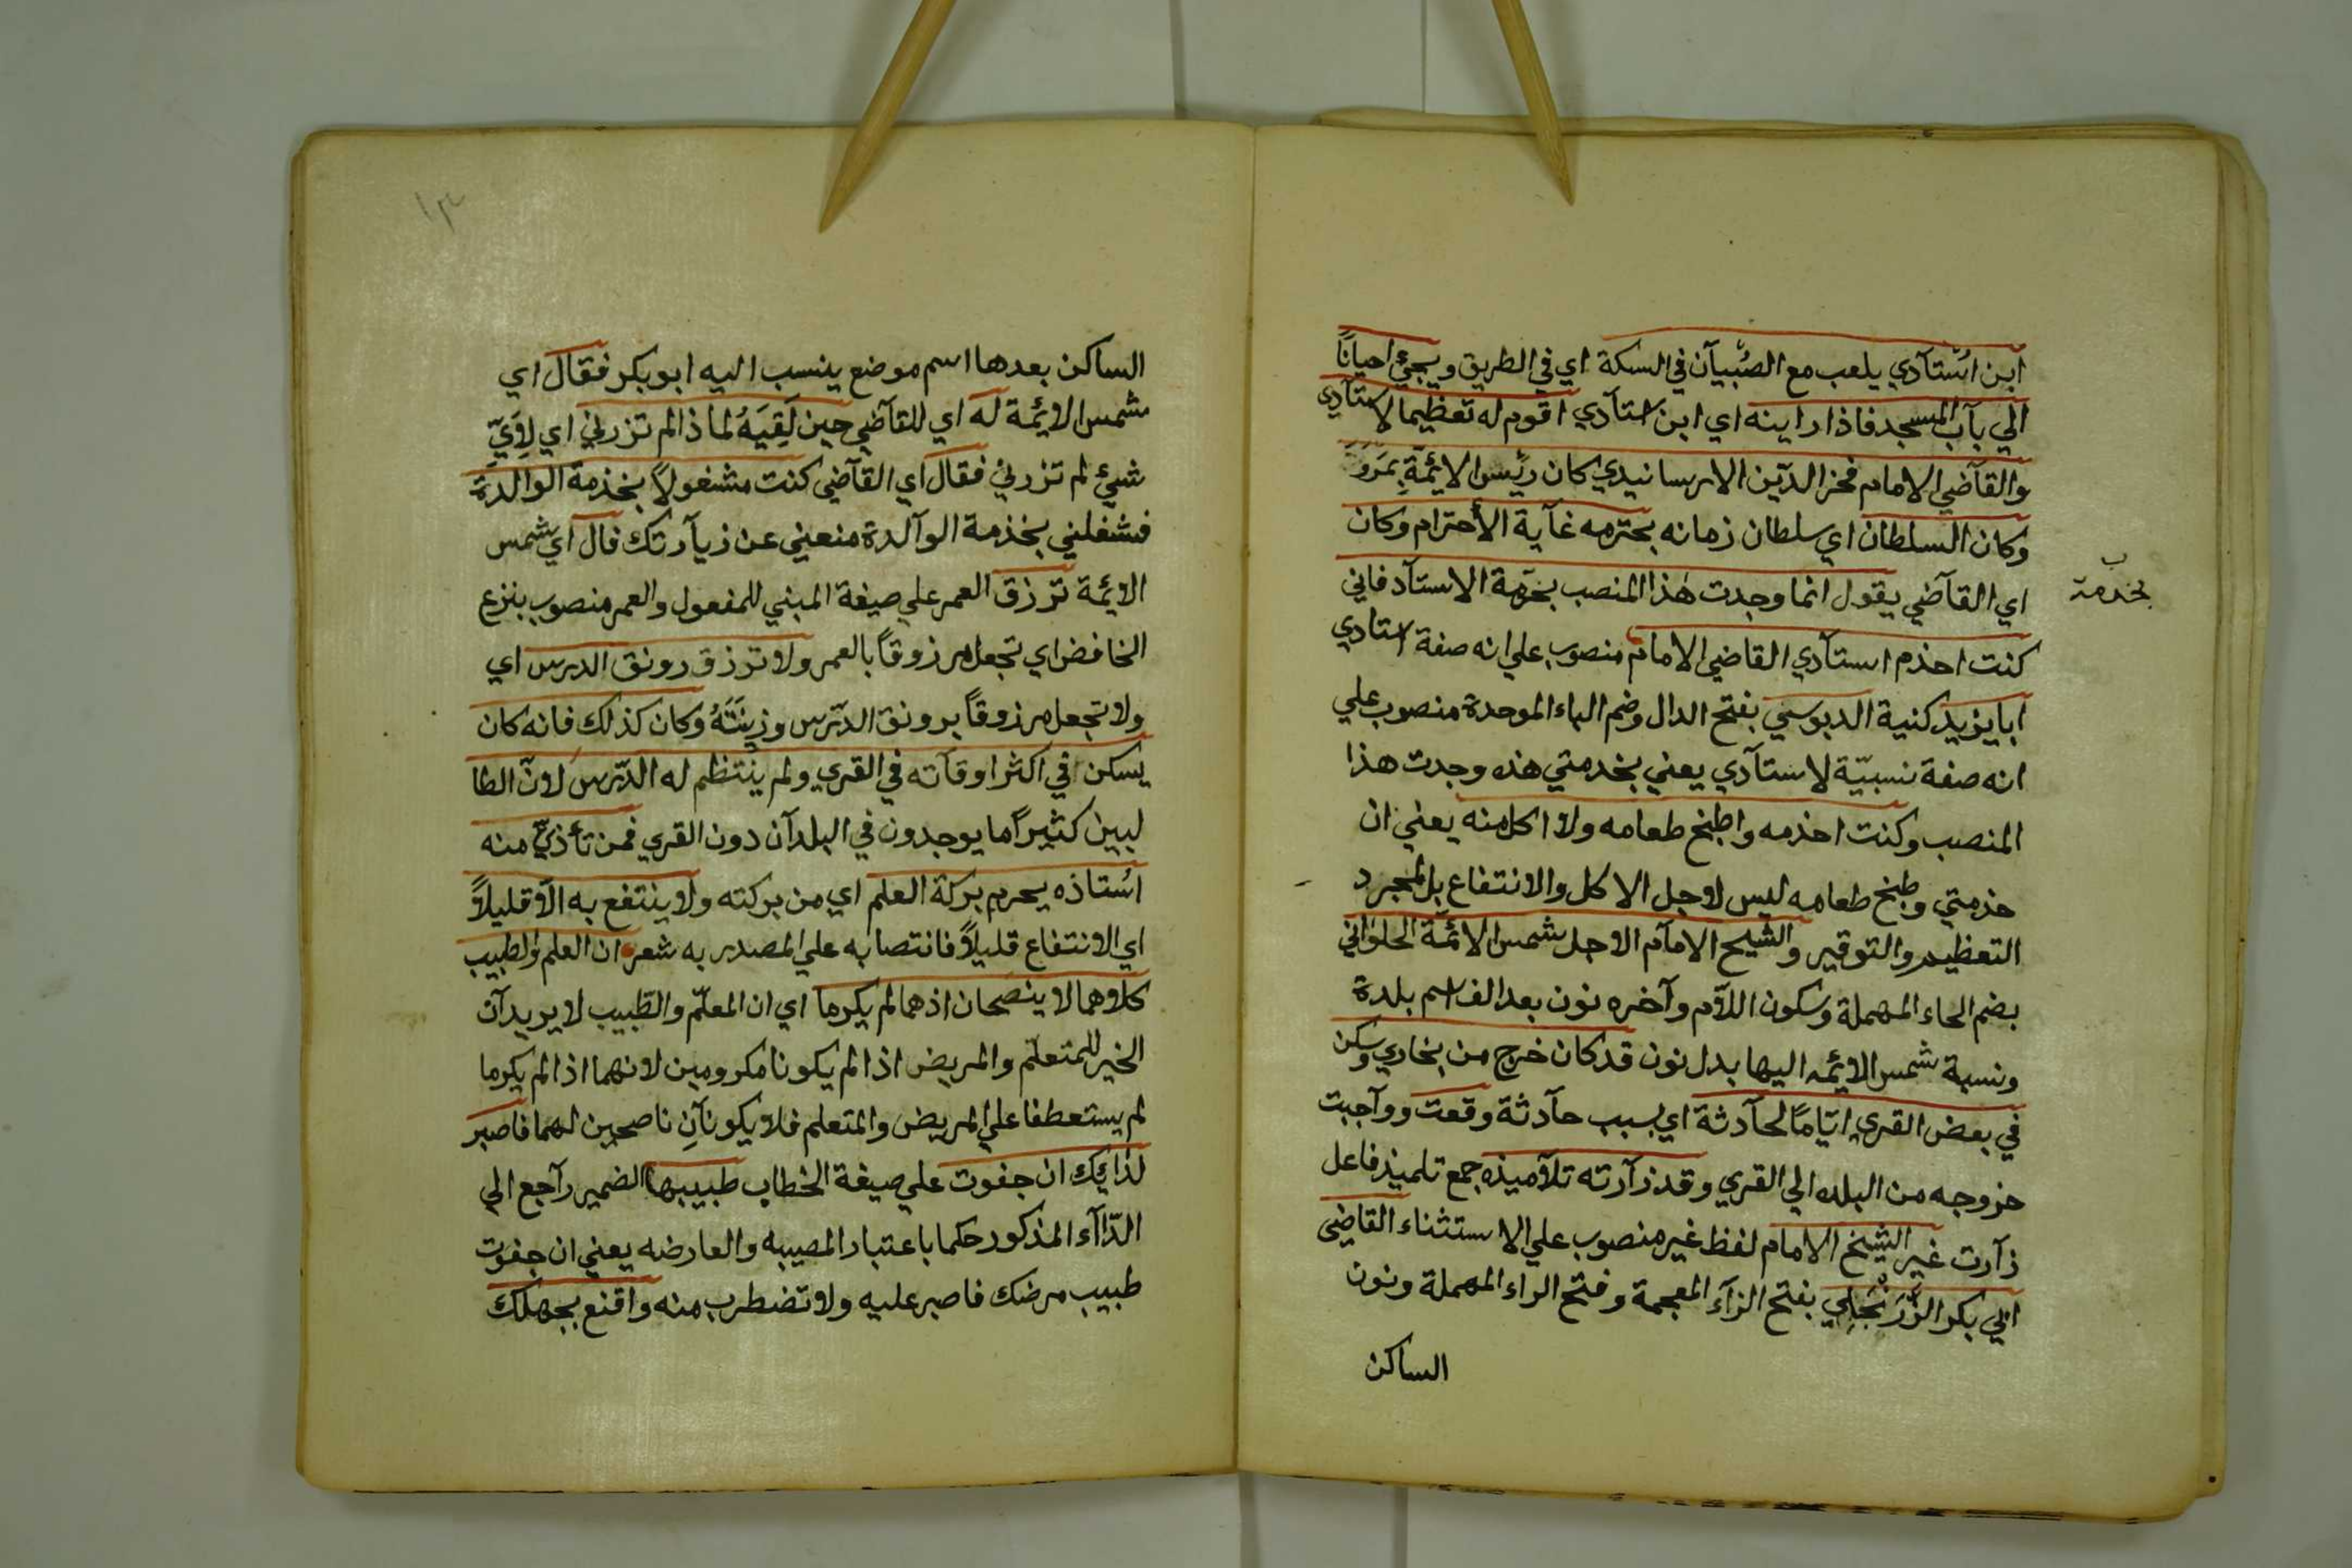 ابن اُسْتآدي يلعب مع الصُبيآن في السكة اي في الطريق ويجيئ احياناً
الي بآب المسجد فاذا راينه اي ابن استآدي اقوم له تعظيما لاستآدي
والقآضي الامام فخر الدّين الارسانيدي كان رئيس الايمّةِ بمَروَ
وكان السلطان اي سلطان زمانه يحترمه غآية الأحترام وكان
اي القآضي يقول انما وجدت هٰذا المنصب بحرمة الاستآد فاني
بخدمة
كنت احذم استآدي القاضي الامام منصوب علي انه صفة استادي
ابا يزيد كنية الدبوسي بفتح الدال وضم الباء الموحدة منصوب علي
انه صفة نسبيّة لاستآدي يعني بخدمتي هذه وجدت هذا
المنصب وكنت احذمه واطبخ طعامه ولا اكل منه يعني ان
خذمتي وطبخ طعامه ليس لاجل الاكل والانتفاع بل لمجرد
التعظيم والتوقير والشيح الامآم الاجل شمس الائمّة الحلواني
بضم الحاء المهملة وسكون اللآم وآخره نون بعد الف اسم بلدة
ونسبة شمس الايمه اليها بدل نون قد كان خرج من بخاري وسكن
في بعض القري ايّامًا لحآدثة اي بسبب حآدثة وقعت ووآجبت
خزوجه من البلده الي القري وقد زآرته تلآميذه جمع تلميذ فاعل
زآرت غير الشيخ الامام لفظ غير منصوب علي الاستثناء القاضي
ابي بكر الزَّرَنْجَلِي بفتح الزآء المعجمة وفتح الراء المهملة ونون
الساكن
١٣
الساكن بعدها اسم موضع ينسب اليه ابو بكر فقال اي
شمس الايمة له اي للقآضي حين لَقِيَهُ لماذا لم تزرني اي لِاَيّ
شيئ لم تزرني فقال اي القآضي كنت مشغولاً بخذمة الوالدة
فشغلني بخذمة الوآلدة منعني عن زيآرتك قال اي شمس
الايمة ترزق العمر علي صيغة المبني للمفعول والعمر منصوب بنزع
الخافض اي تجعل مرزوقاً بالعمر ولا ترزق رونق الدرس اي
ولا تجعل مرزوقاً برونق الدّرس وزِينَتُهُ وكان كذلك فانه كان
يسكن في اكثر اوقآته في القري ولم ينتظم له الدّرس لانّ الطا
لبين كثيراً ما يوجدون في البلدآن دون القري فمن تأذيّ منه
اسُتاذه يحرم بركة العلم اي من بركته ولا ينتفع به الاّ قليلاً
اي الانتفاع قليلاً فانتصابه علي المصدر به شعر ان العلم والطبيب
كلاهما لا ينصَحان اذ هما لم يكرما اي ان المعلّم والطّبيب لا يريدآن
الخير للمتعلّم والمريض اذا لم يكونا مكرومين لانهما اذا لم يكرما
لم يستعطفا علي المريض والمتعلم فلا يكونآنِ ناصحين لهما فاصبر
لذايك ان جفوت علي صيغة الخطاب طبيبها الضمير رآجع الي
الدّآء المذكور حكما باعتبار المصيبه والعارضه يعني ان جفوت
طبيب مرضك فاصبر عليه ولا تضطرب منه واقنع بجهلك